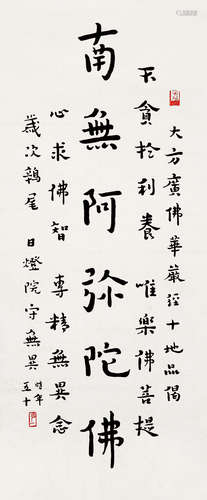 大方廣佛華嚴經十地品偈
不貪於利養 唯樂佛菩提
南無阿弥陀佛
心求佛智 專精無異念
歲次鶉尾 日燈院守無異 時年五十